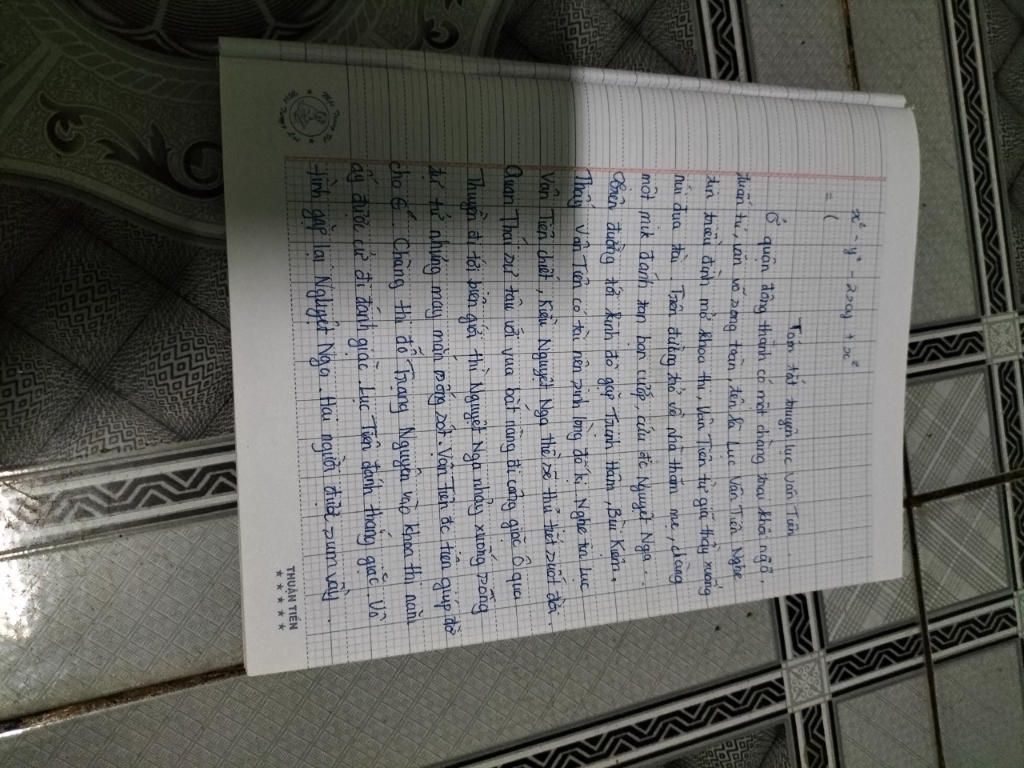 x² - y² - 2xy + x²
= (
Tóm tắt truyện Lục Vân Tiên
Ở quận đông thành có một chàng trai khôi ngô,
tuấn tú, văn võ song toàn, tên là Lục Vân Tiên. Nghe
tin triều đình mở khoa thi, Vân Tiên từ giã thầy xuống
núi đua tài. Trên đường trở về nhà thăm mẹ, chàng
một mik đánh tan bọn cướp, cứu đc Nguyệt Nga.
đường tới kinh đô gặp Trịnh Hâm, Bùi Kiệm,
Thấy Vân Tiên có tài nên sinh lòng đố kị. Nghe tin Lục
Vân Tiên chết, Kiều Nguyệt Nga thề sẽ thủ tiết suốt đời.
Quan Thái sư tâu với vua bắt nàng đi cống giặc Ô qua
Thuyền đi tới biên giới thì Nguyệt Nga nhảy xuống sông
tự tử nhưng may mắn sống sót. Vân Tiên đc tiên giúp đỡ
cho Chàng thi đỗ Trạng Nguyên vào khoa thi năm
ấy được cử đi đánh giặc. Lục Tiên đánh thắng giặc. Và
tìm gặp lại Nguyệt Nga. Hai người được sum vầy.
THUẬN TIẾN